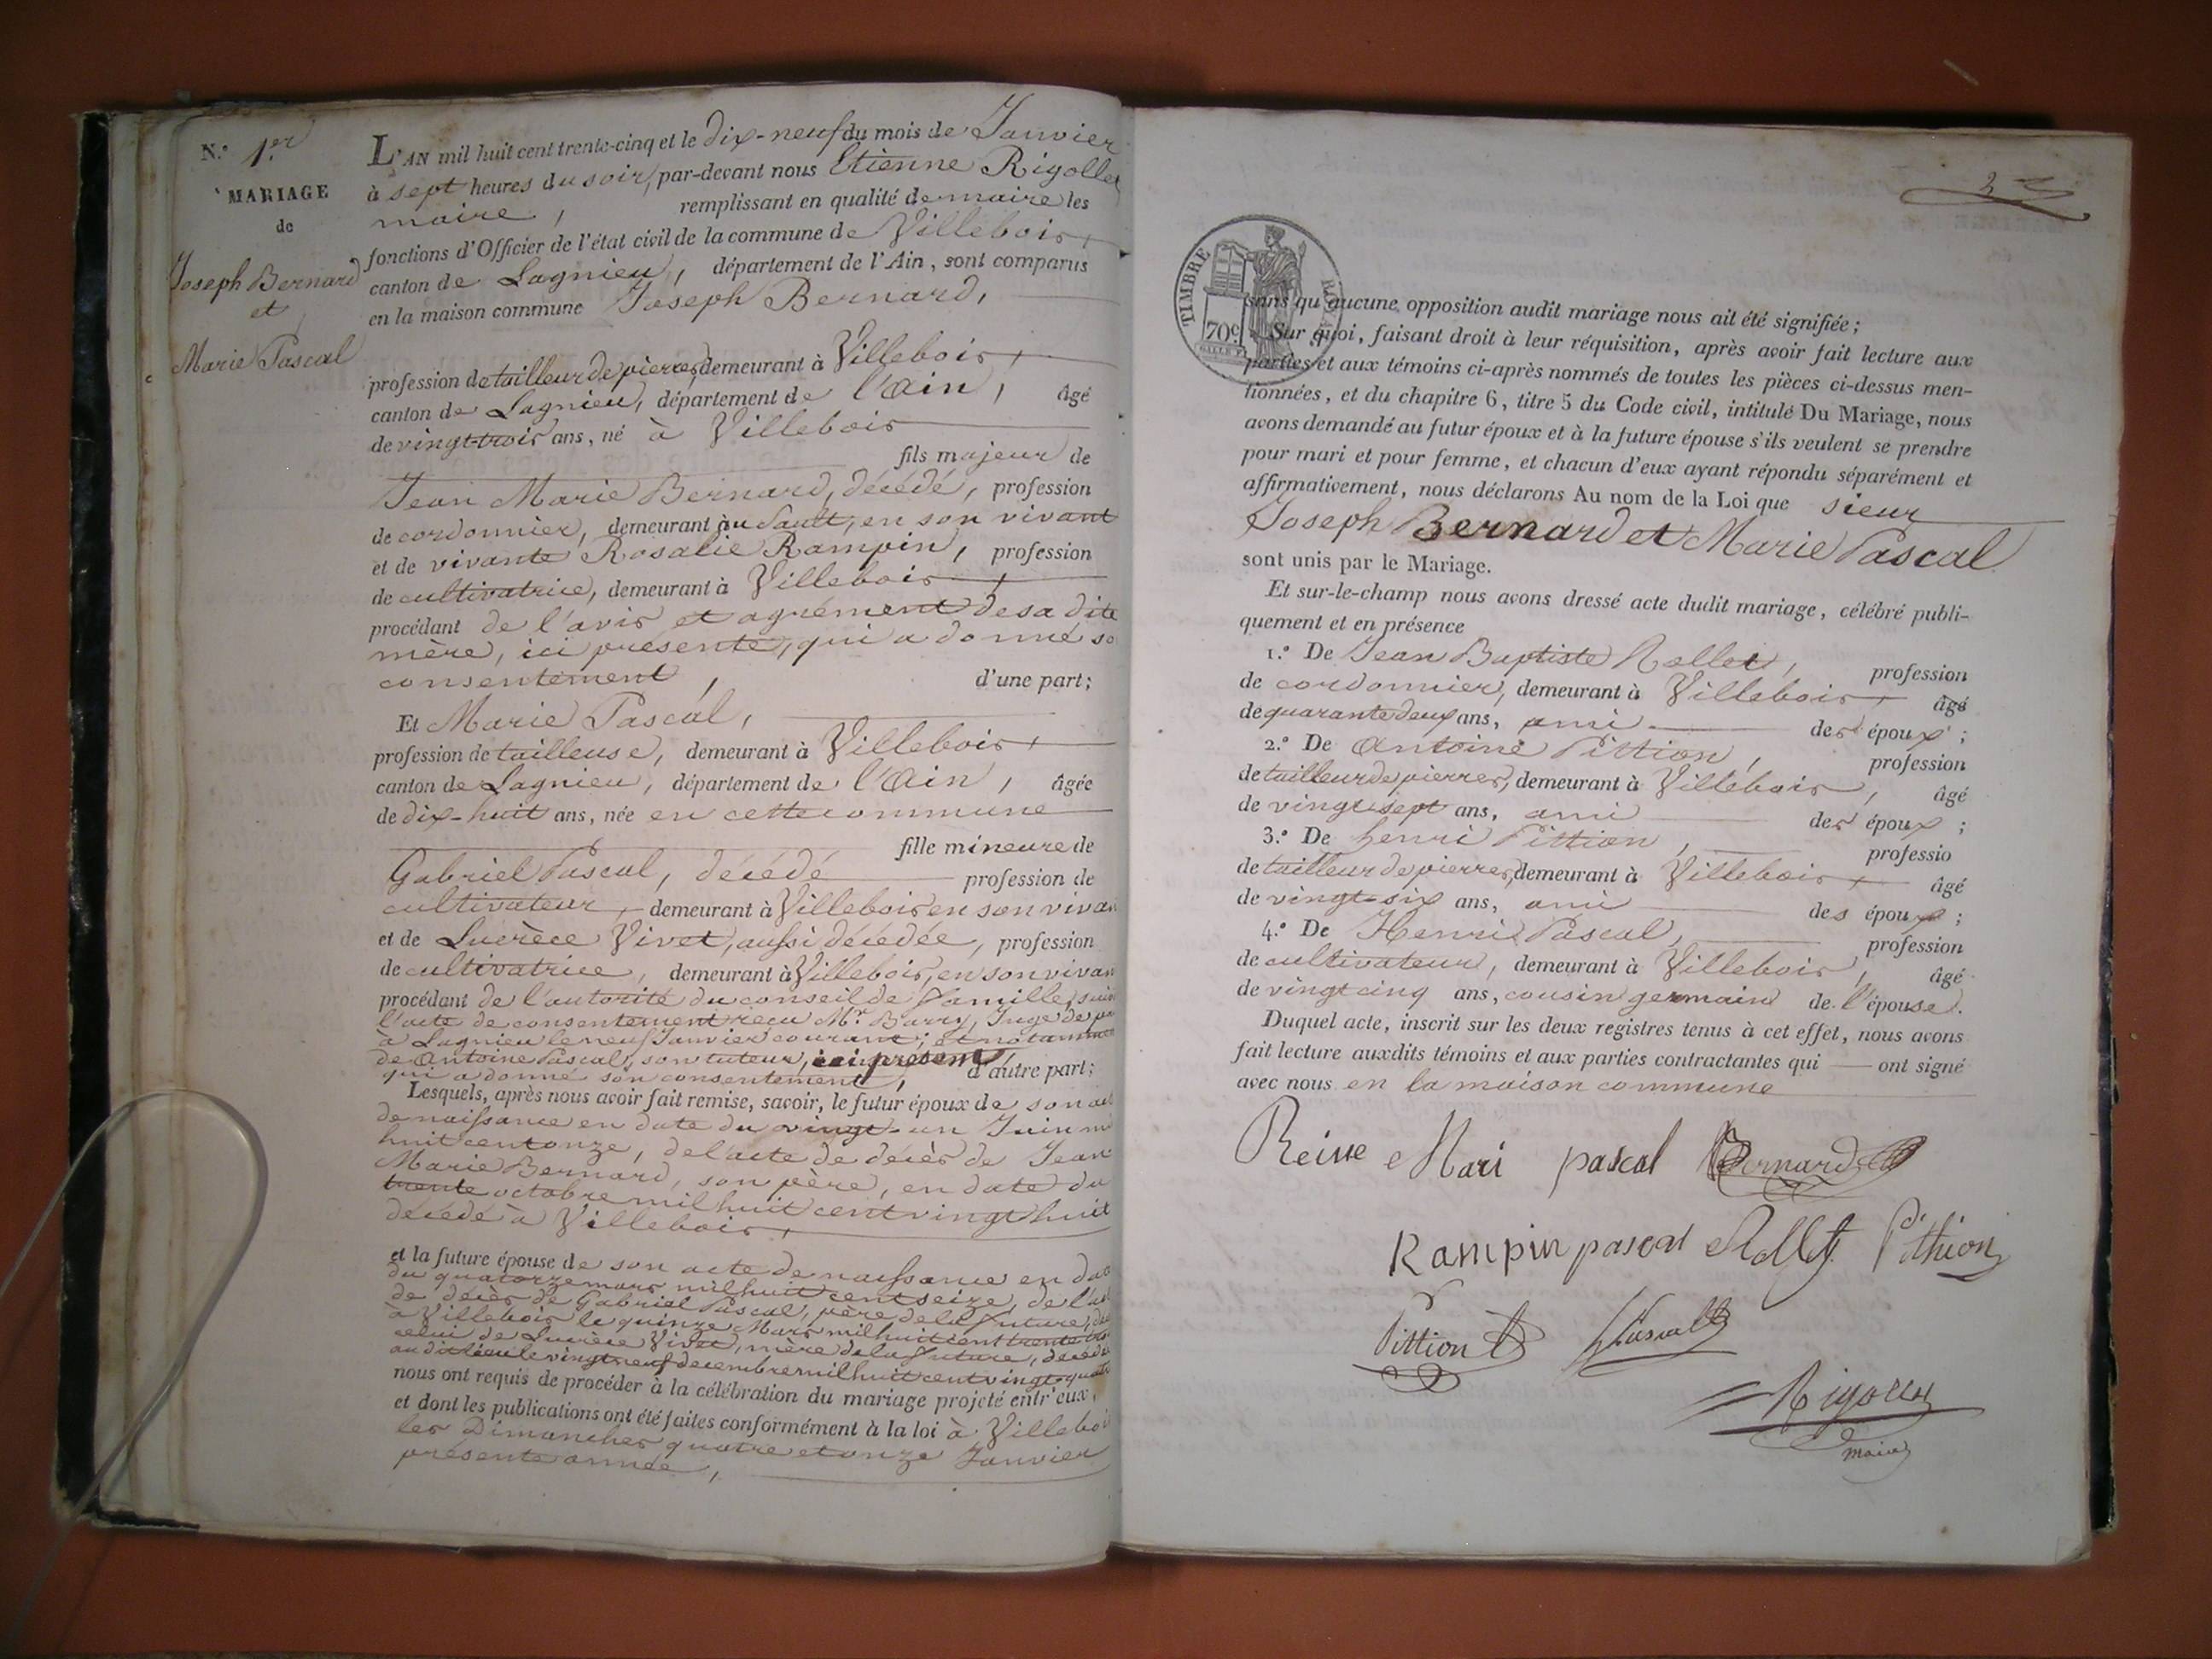 N.º 1.er
MARIAGE
de
Joseph Bernard
et
Marie Pascal
L'AN mil huit cent trente-cinq et le dix-neuf du mois de Janvier
à sept heures du soir, par-devant nous Etienne Rigollet
maire, remplissant en qualité de maire les
fonctions d'Officier de l'état civil de la commune de Villebois,
canton de Lagnieu, département de l'Ain, sont comparus
en la maison commune Joseph Bernard,
profession de tailleur de pierres, demeurant à Villebois,
canton de Lagnieu, département de l'Ain, âgé
de vingt-trois ans, né à Villebois
fils majeur de
Jean Marie Bernard, décédé, profession
de cordonnier, demeurant au Sault, en son vivant
et de vivante Rosalie Rampin, profession
de cultivatrice, demeurant à Villebois,
procédant de l'avis et agrément de sa dite
mère, ici présente, qui a donné so
consentement, d'une part;
Et Marie Pascal,
profession de tailleuse, demeurant à Villebois,
canton de Lagnieu, département de l'Ain, âgée
de dix-huit ans, née en cette commune
fille mineure de
Gabriel Pascal, décédé profession de
cultivateur, demeurant à Villebois en son vivan
et de Lucrèce Vivet, aussi décédée, profession
de cultivatrice, demeurant à Villebois, en son vivan
procédant de l'autorité du conseil de famille, suiv
l'acte de consentement reçu Mr. Barry, Juge de pa
à Lagnieu le neuf Janvier courant, et notamme
de Antoine Pascal, son tuteur, ici présent,
qui a donné son consentement, d'autre part;
Lesquels, après nous avoir fait remise, savoir, le futur époux de son act
de naissance en date du vingt-un Juin mi
huit cent onze, de l'acte de décès de Jean
Marie Bernard, son père, en date du
trente octobre mil huit cent vingt huit
décédé à Villebois,
et la future épouse de son acte de naissance en dat
du quatorze mars mil huit cent seize, de l'act
de décès de Gabriel Pascal, père de la future, dé
à Villebois le quinze Mars mil huit cent trente tro
celui de Lucrèce Vivet, mère de la future, décédé
au dit lieu le vingt neuf decembre mil huit cent vingt-quat
nous ont requis de procéder à la célébration du mariage projeté entr'eux,
et dont les publications ont été faites conformément à la loi à Villeboi
les Dimanches quatre et onze Janvier
présente année,
TIMBRE
70c
sans qu'aucune opposition audit mariage nous ait été signifiée;
Sur quoi, faisant droit à leur réquisition, après avoir fait lecture aux
parties et aux témoins ci-après nommés de toutes les pièces ci-dessus men-
tionnées, et du chapitre 6, titre 5 du Code civil, intitulé Du Mariage, nous
avons demandé au futur époux et à la future épouse s'ils veulent se prendre
pour mari et pour femme, et chacun d'eux ayant répondu séparément et
affirmativement, nous déclarons Au nom de la Loi que sieur
Joseph Bernard et Marie Pascal
sont unis par le Mariage.
Et sur-le-champ nous avons dressé acte dudit mariage, célébré publi-
quement et en présence
1.º De Jean Baptiste Rollet, profession
de cordonnier, demeurant à Villebois, âgé
de quarante deux ans, ami des époux;
2.º De Antoine Pittion, profession
de tailleur de pierres, demeurant à Villebois, âgé
de vingt-sept ans, ami des époux;
3.º De henri Pittion, professio
de tailleur de pierres, demeurant à Villebois, âgé
de vingt-six ans, ami des époux;
4.º De Henri Pascal, profession
de cultivateur, demeurant à Villebois, âgé
de vingt cinq ans, cousin germain de l'épouse.
Duquel acte, inscrit sur les deux registres tenus à cet effet, nous avons
fait lecture auxdits témoins et aux parties contractantes qui ont signé
avec nous en la maison commune
Reine Mari pascal Bernard
Rampin pascal Rollet Pithion
Pittion Pascal
Rigollet
maire